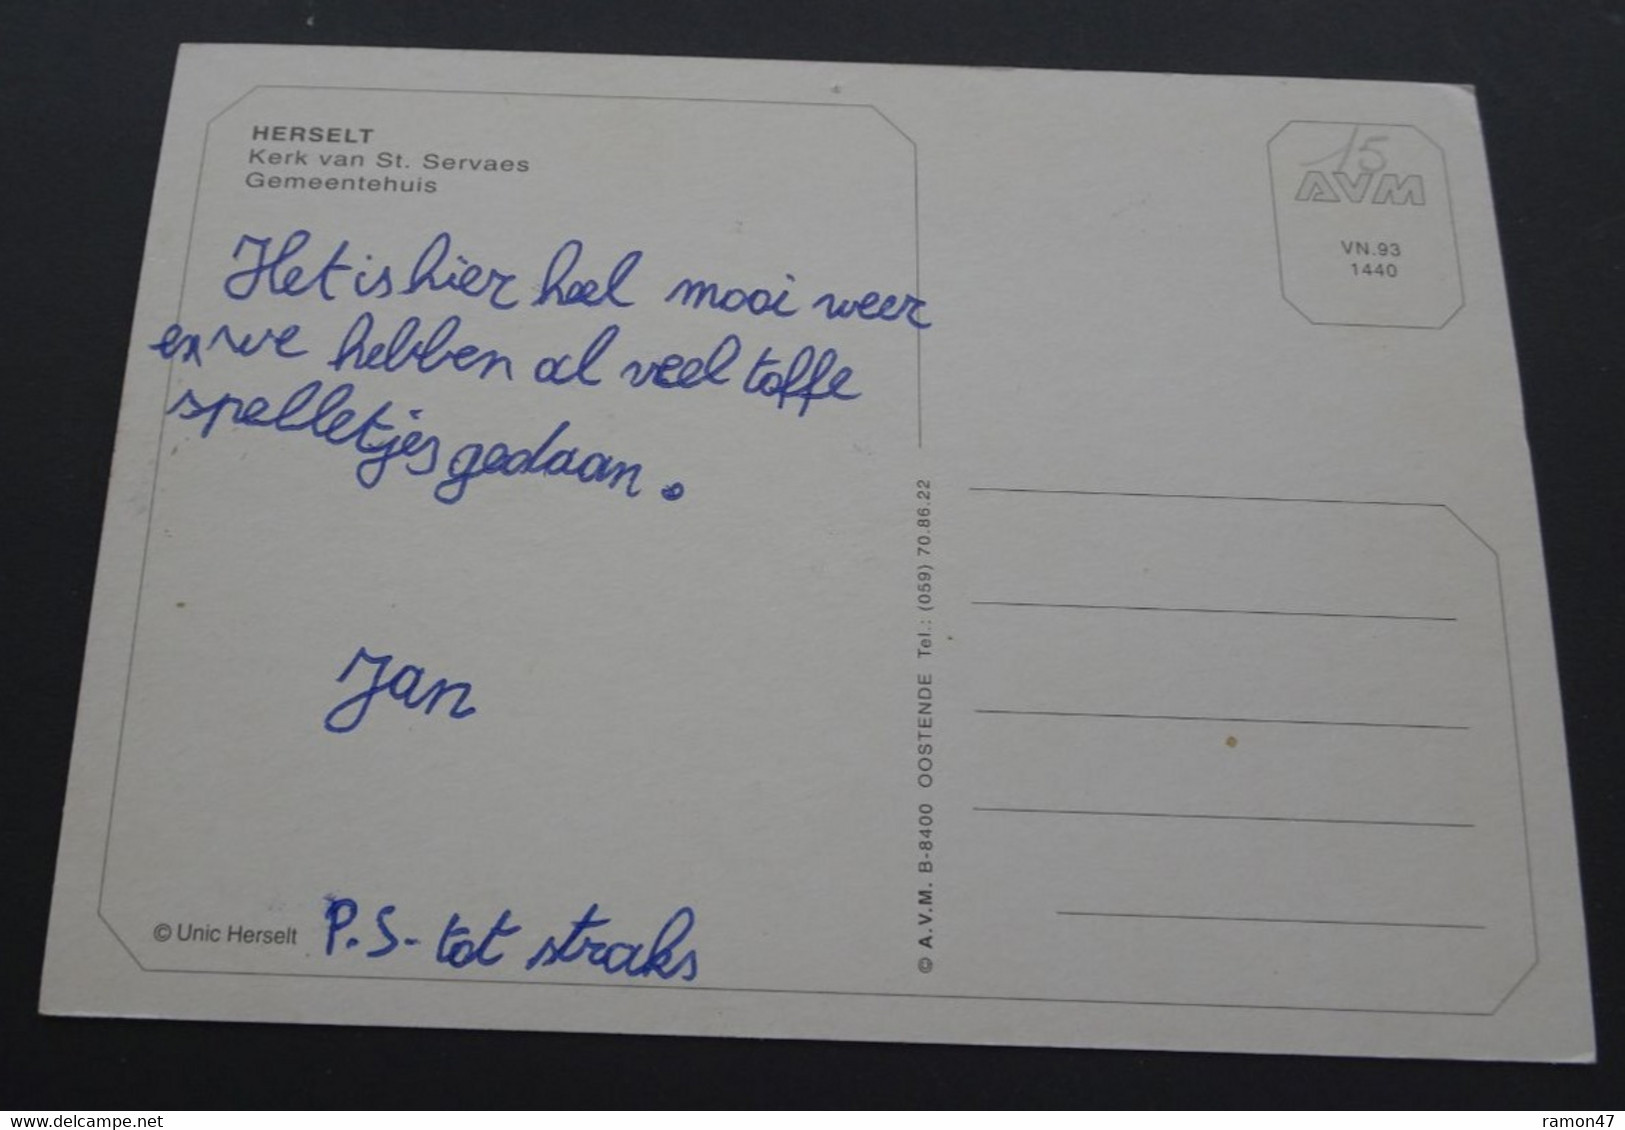 HERSELT
Kerk van St. Servaes
Gemeentehuis
Het is hier heel mooi weer
en we hebben al veel toffe
spelletjes gedaan.
Jan
© Unic Herselt
P.S- tot straks
© A.V.M. B-8400 OOSTENDE Tel.: (059) 70.86.22
15
AVM
VN.93
1440
delcampe.net
ramon47